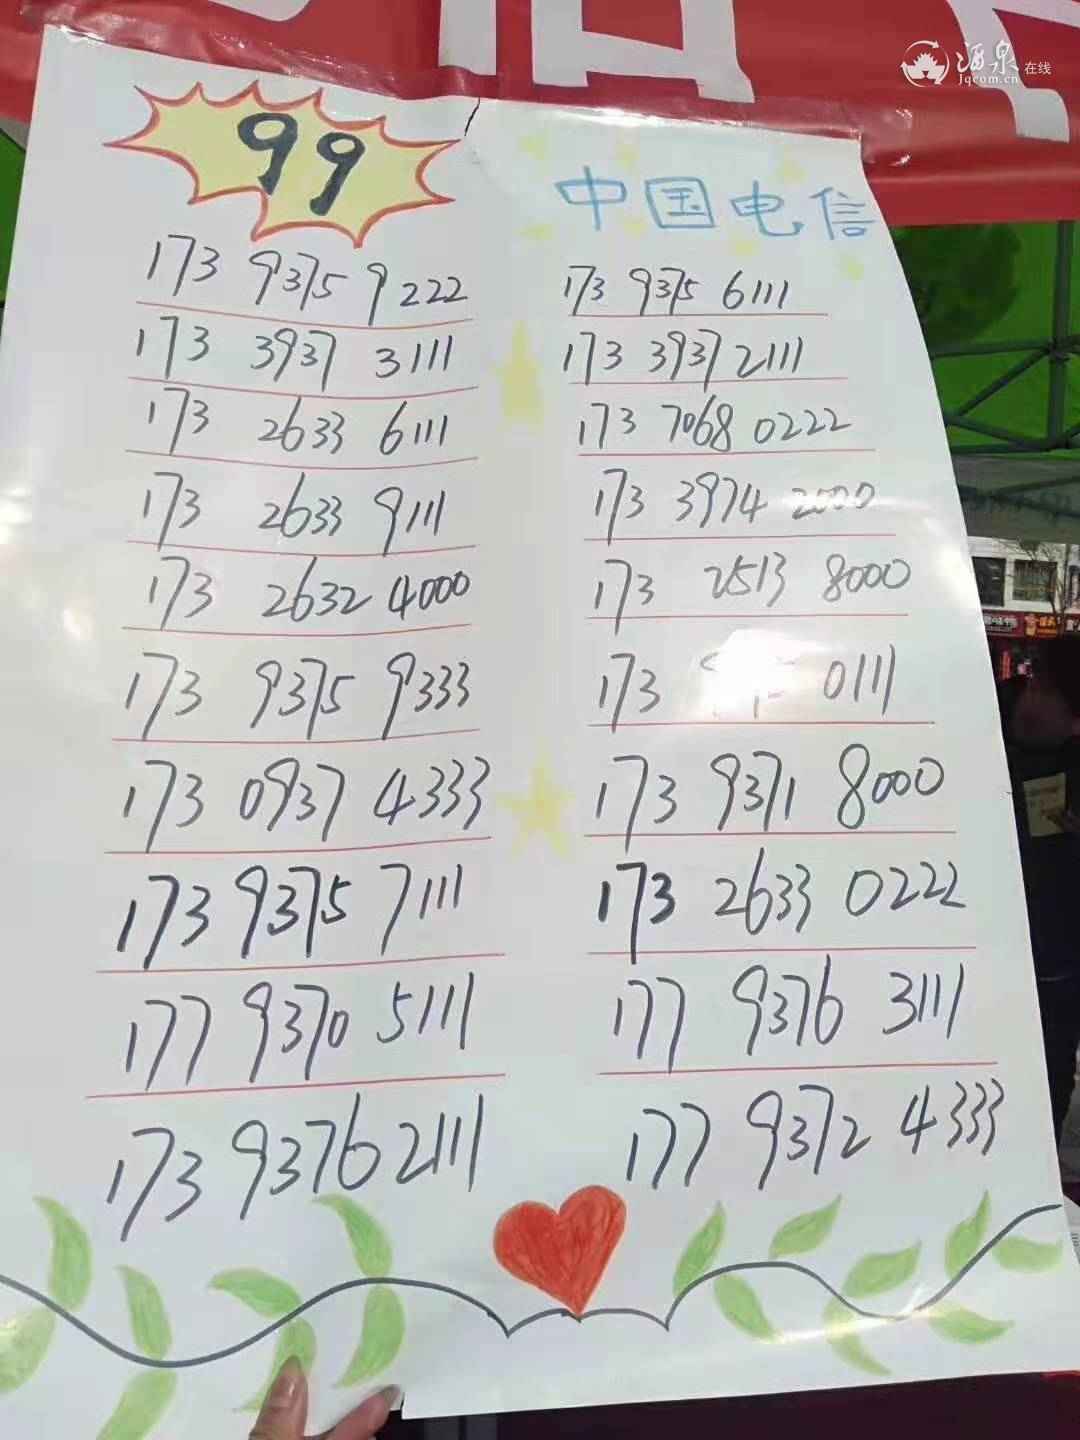 酒泉在线
Jqcom.cn
99
中国电信
173 9375 9222
173 3937 3111
173 2633 6111
173 2633 9111
173 2632 4000
173 9375 9333
173 0937 4333
173 9375 7111
177 9370 5111
173 9376 2111
173 9375 6111
173 3937 2111
173 7068 0222
173 3974 2000
173 2513 8000
173 0111
173 9371 8000
173 2633 0222
177 9376 3111
177 9372 4333